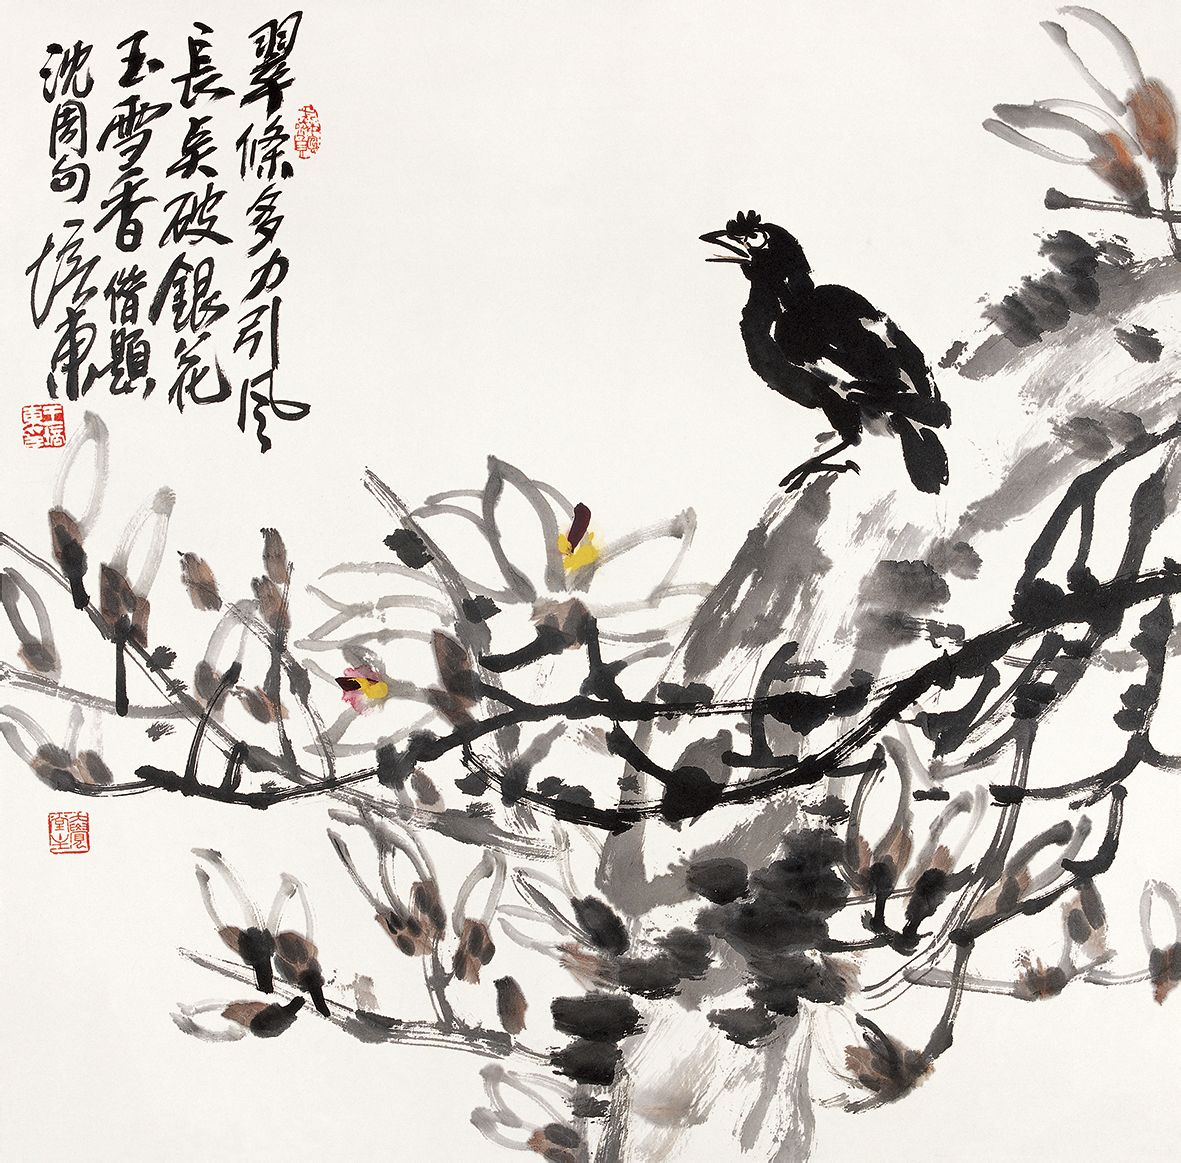 翠條多力引风
長奌破銀花
玉雪香借題
沈周句培東